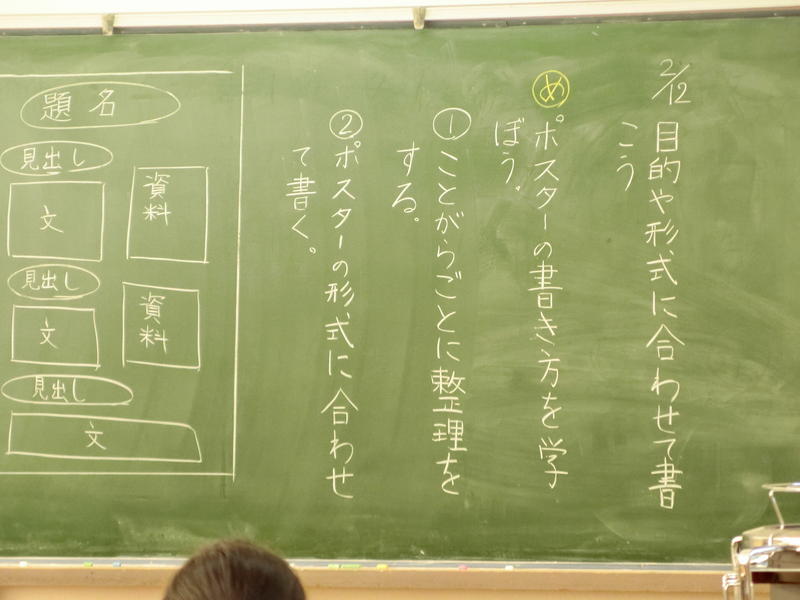 2/12
目的や形式に合わせて書
こう
め
ポスターの書き方を学
ぼう。
① ことがらごとに整理を
する。
② ポスターの形式に合わせ
て書く。
題名
見出し
資料
文
見出し
資料
文
見出し
文